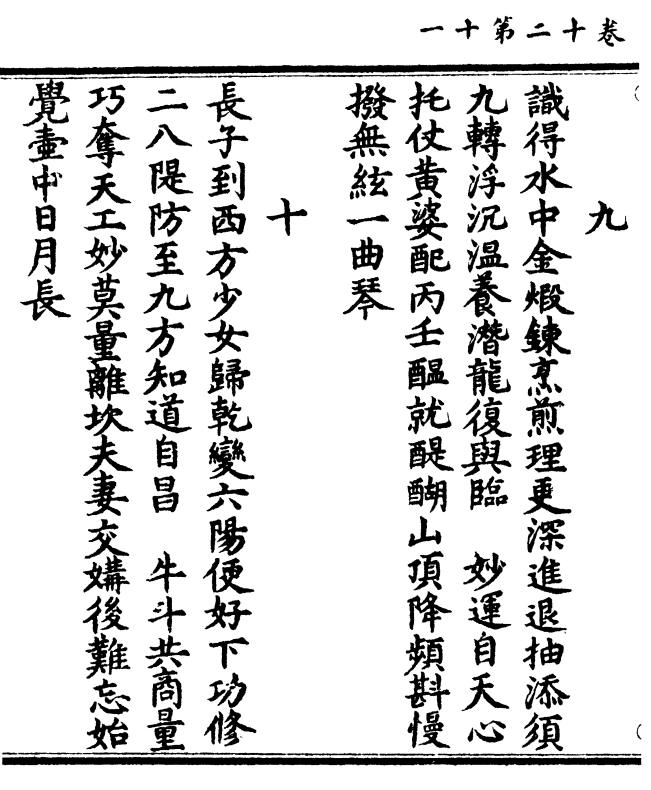 卷十二第十一
九
識得水中金煅鍊烹煎理更深進退抽添須
九轉浮沉溫養潛龍復與臨　妙運自天心
托仗黃婆配丙壬醞就醍醐山頂降頻斟慢
撥無絃一曲琴
十
長子到西方少女歸乾變六陽便好下功修
二八隄防至九方知道自昌　牛斗共商量
巧奪天工妙莫量離坎夫妻交媾後難忘始
覺壺中日月長